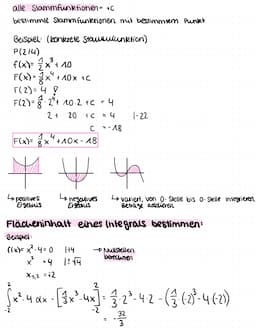 alle Stammfunktionen = +C
bestimmte Stammfunktionen mit bestimmtem Punkt
Beispiel: (konkrete Stammfunktion)
P(2/4)
f(x)= 1/2 x³ + 10
F(x)= 1/8 x⁴ + 10x + c
F(2) = 4
F(2)= 1/8 · 2⁴ + 10·2 + c = 4
2 + 20 + c = 4 |-22
c = -18
F(x)= 1/8 x⁴ + 10x - 18
↳ positives Ergebnis
↳ negatives Ergebnis
↳ variiert, von 0-Stelle bis 0-Stelle integrieren, Beträge addieren
Flächeninhalt eines Integrals bestimmen:
Beispiel:
f(x)= x²-4=0 |+4 → Nullstellen berechnen
x² = 4 |±√4
x₁,₂ = ±2
∫₋₂² x²-4 dx = [1/3 x³-4x]₋₂² = 1/3 · 2³ - 4·2 - (1/3 (-2)³ - 4(-2))
= -32/3